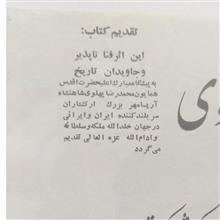 تقدیم کتاب:
این اثر فنا ناپذیر
و جاویدان تاریخ
به پیشگاه مبارک اعلیحضرت اقدس
همایون محمدرضا پهلوی شاهنشاه
آریامهر بزرگ ارتشتاران
سربلند کننده ایران و ایرانی
در جهان خلدالله ملکه و سلطانه
و ادام الله عزه العالی تقدیم
می گردد